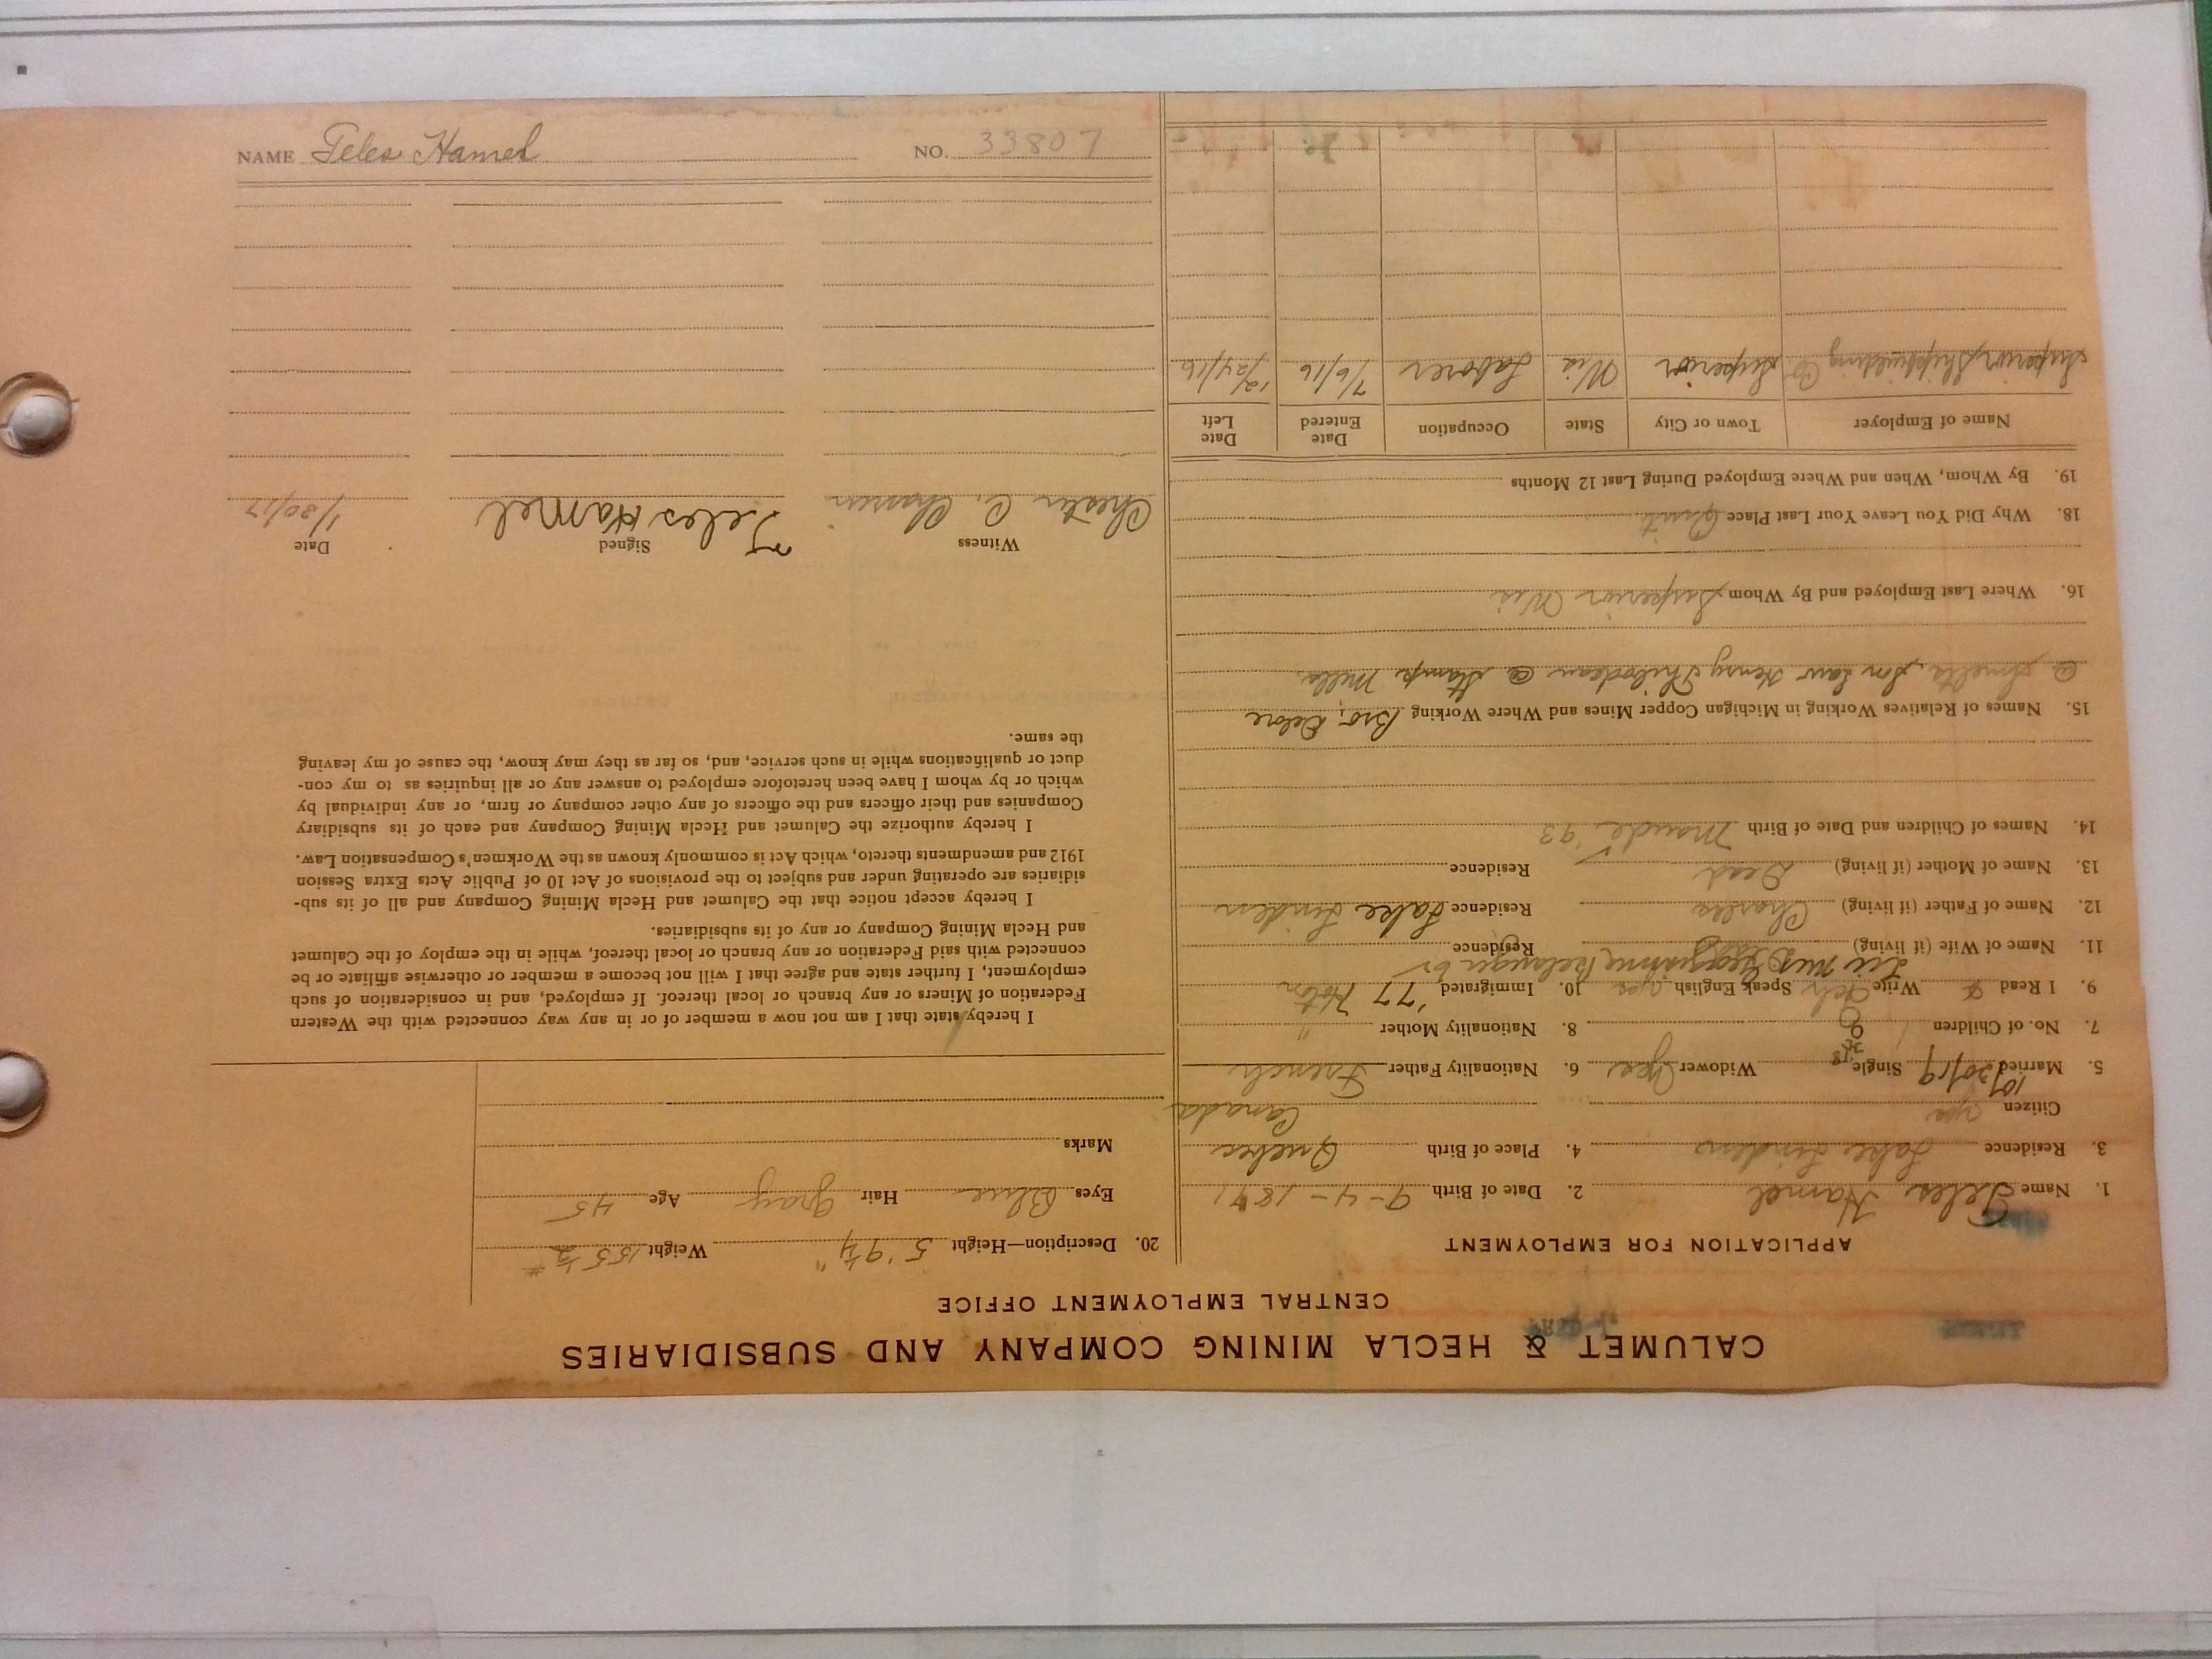 CALUMET & HECLA MINING COMPANY AND SUBSIDIARIES
CENTRAL EMPLOYMENT OFFICE
APPLICATION FOR EMPLOYMENT
1. Name Teles Hamel 2. Date of Birth 9-4-1871
3. Residence Lake Linden 4. Place of Birth Quebec
Citizen yes Canada
5. Married 10/20/19 Single Widower yes 6. Nationality Father French
7. No. of Children 8. Nationality Mother "
9. I Read Write Speak English yes 10. Immigrated '77
11. Name of Wife (if living) Residence
12. Name of Father (if living) Charles Residence Lake Linden
13. Name of Mother (if living) Dead Residence
14. Names of Children and Date of Birth Maude '93
15. Names of Relatives Working in Michigan Copper Mines and Where Working Bro,
@ Smelter, Son Law Henry @ Stamp Mills
16. Where Last Employed and By Whom Superior Wis
18. Why Did You Leave Your Last Place Quit
19. By Whom, When and Where Employed During Last 12 Months
Name of Employer Town or City State Occupation Date Entered Date Left
Superior Shipbuilding Co Superior Wis Laborer 7/6/16 12/24/16
20. Description—Height 5' 9 1/4" Weight 155 1/2 #
Eyes Blue Hair Gray Age 45
Marks
I hereby state that I am not now a member of or in any way connected with the Western
Federation of Miners or any branch or local thereof. If employed, and in consideration of such
employment, I further state and agree that I will not become a member or otherwise affiliate or be
connected with said Federation or any branch or local thereof, while in the employ of the Calumet
and Hecla Mining Company or any of its subsidiaries.
I hereby accept notice that the Calumet and Hecla Mining Company and all of its sub-
sidiaries are operating under and subject to the provisions of Act 10 of Public Acts Extra Session
1912 and amendments thereto, which Act is commonly known as the Workmen's Compensation Law.
I hereby authorize the Calumet and Hecla Mining Company and each of its subsidiary
Companies and their officers and the officers of any other company or firm, or any individual by
which or by whom I have been heretofore employed to answer any or all inquiries as to my con-
duct or qualifications while in such service, and, so far as they may know, the cause of my leaving
the same.
Witness Signed Date
Chester C. Teles Hamel 1/30/17
NAME Teles Hamel NO. 33807